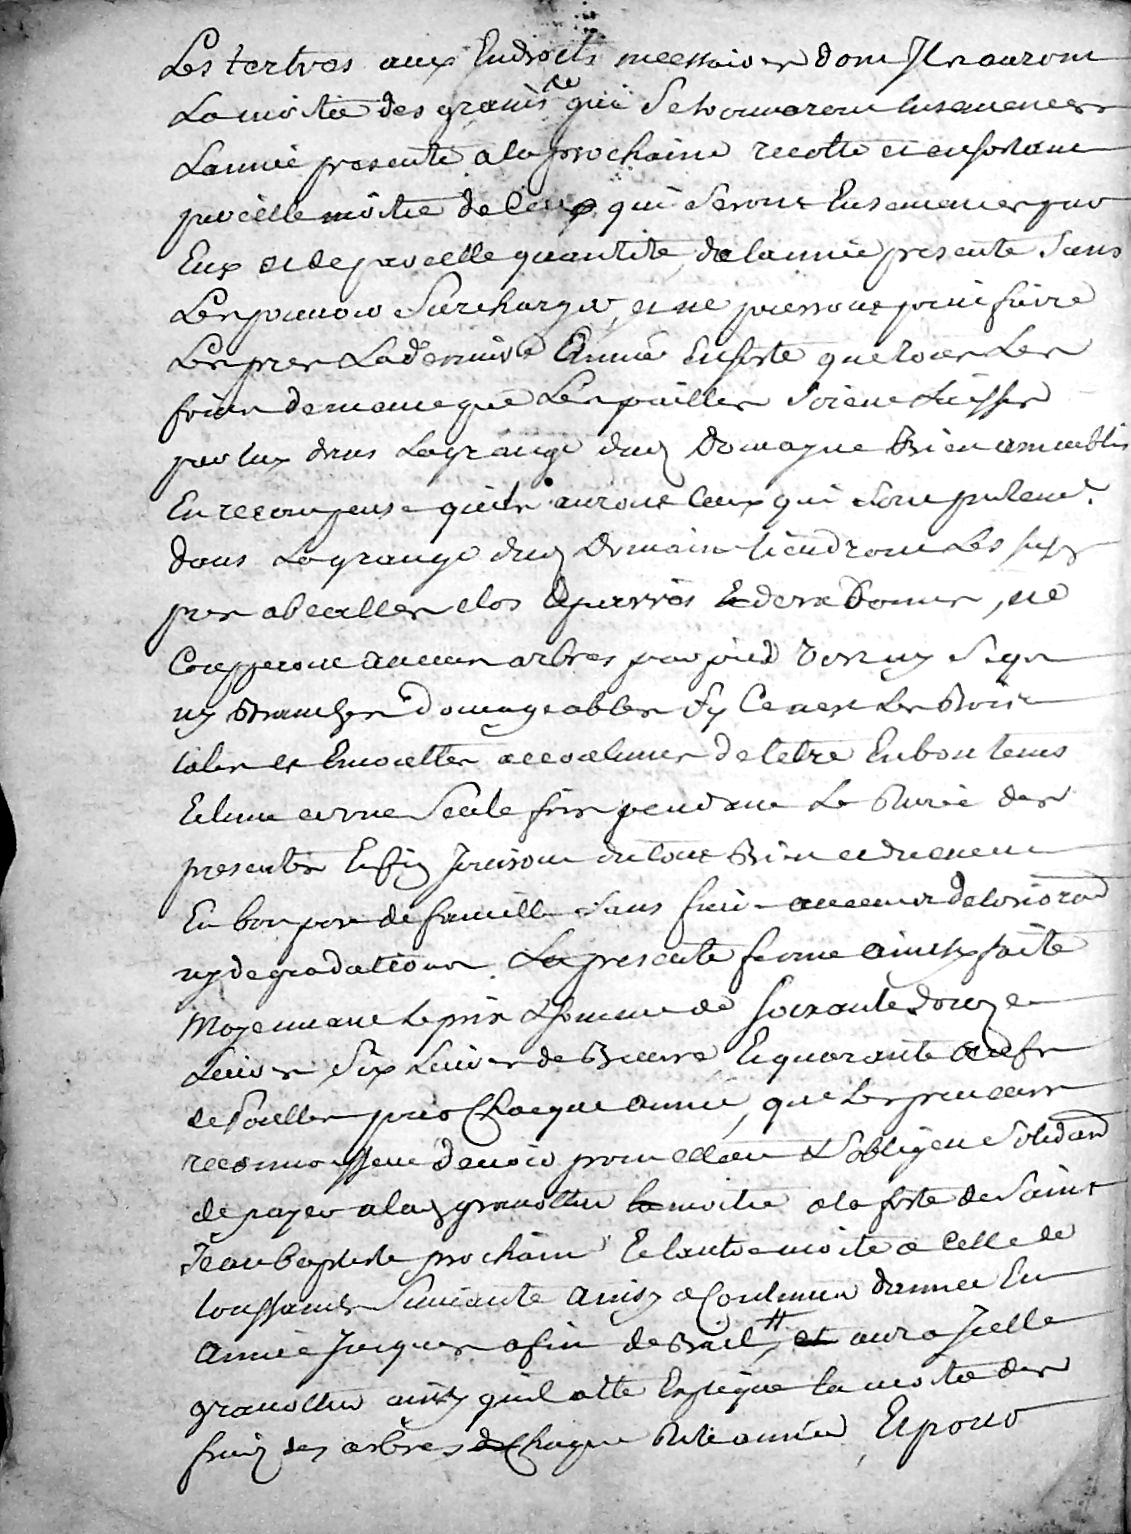 Les tertres aux Endroits necessaires dont Ils auront
La moitie des grains qui Se trouveront Ensemences
Lannee presente a la prochaine recolte et en sortant
pareille moitie de ceux qui Seront Ensemences par
Eux et de pareille quantite, de lannee presente Sans
Les pouvoir Surcharger, et ne pourront point faire
Les pres La derniere Année Ensorte que tous Les
foins de meme que Les pailles Soient Laissés
par Eux dans La grange dud Domayne Bien
En recompense quils auront Ceux qui Sont
dans La grange dud Domaine tiendront Les
pres clos ne
Coupperont aucuns arbres par pied
ny Branches Domageables Sy Ce nest Les Bois
tailes et accoutumes de letre En bon tems
Et une Seule fois pendant Le Duree des
presentes Enfin Jouiront du tout Bien et duement
En bon pere de famille Sans faire aucunes deteriora
ny degradations. La presente ferme ainsy faite
Moyennant Le prix & Somme de Soixante douze
Livres Six Livres de Beurre Et quarante œufs
de Poulles par Chacque année, que Les preneurs
reconnoissent devoir promettent & Sobligent Solidair
de payer a lad la moitie a la feste de Saint
Jean baptiste prochain Et lautre moitie a Celle de
toussaints Suivante ainsy a Continuer dannee En
année Jusques a fin de Bail, et aura Jcelle
ainsy quil a ete Expliqué la moitie des
fruits des arbres de Chaque année, Et pour